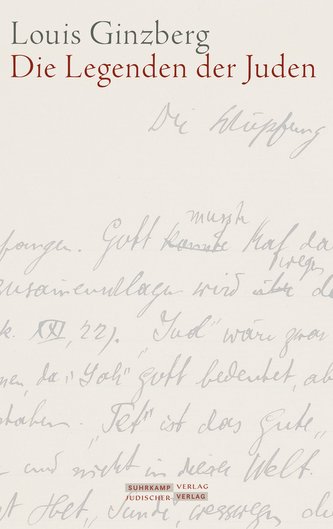 Louis Ginzberg
Die Legenden der Juden
Die Schöpfung
musste
fangen. Gott konnte Kaf da
wegen
zusammenschlagen wird über de
k. XXI, 22). „Jud" wäre zwar
nen, da „Jah" Gott bedeutet, ab
staben. „Tet" ist das Gute,
und nicht in dieser Welt.
st Het, Sünde, weswegen di
SUHRKAMP VERLAG
JÜDISCHER VERLAG